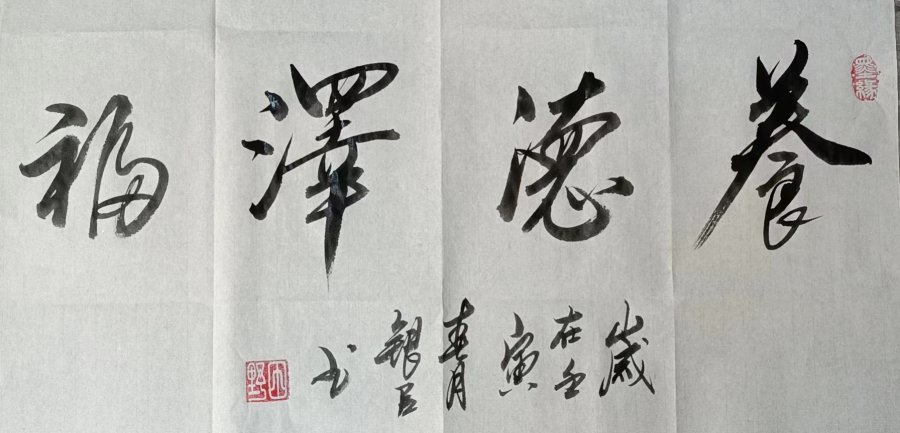 養德澤福
歲在壬寅春月銀臣书